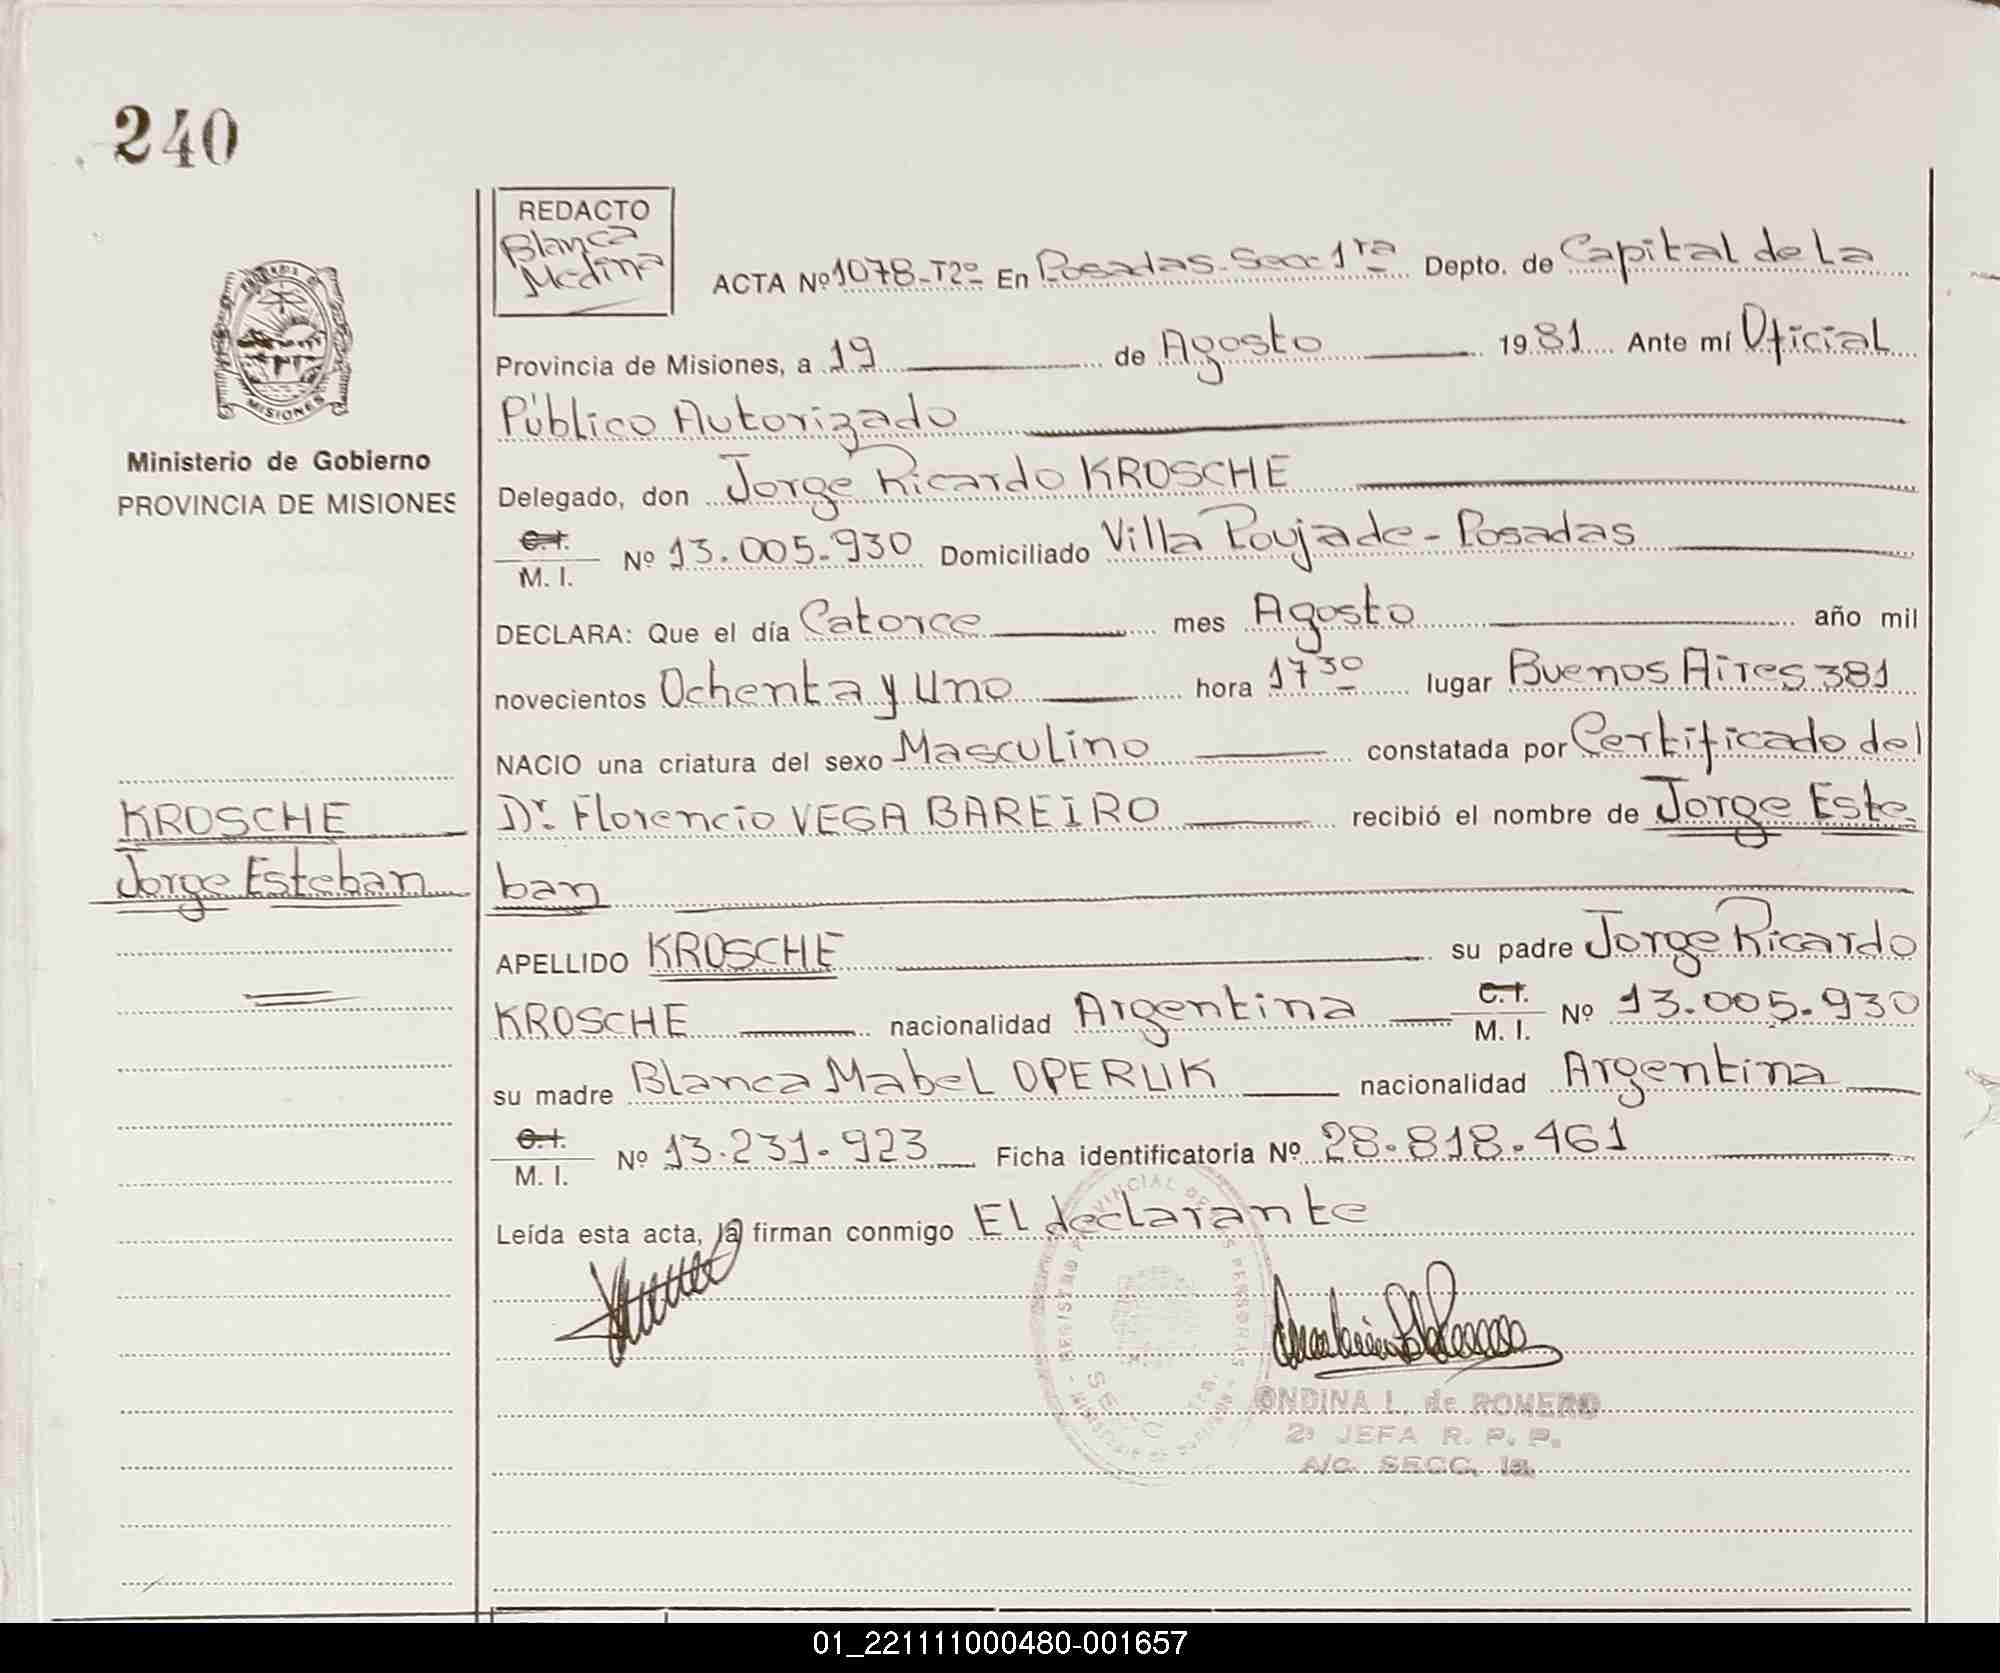 240
REDACTO
Blanca
Medina
ACTA Nº 1078-T2º En Posadas-Secc 1ra Depto. de Capital de La
Provincia de Misiones, a 19 de Agosto 1981 Ante mí Oficial
Público Autorizado
Delegado, don Jorge Ricardo KROSCHE
C.I. M. I. Nº 13.005.930 Domiciliado Villa Poujade - Posadas
DECLARA: Que el día Catorce mes Agosto año mil
novecientos Ochenta y Uno hora 17 30 lugar Buenos Aires 381
NACIO una criatura del sexo Masculino constatada por Certificado del
Dr. Florencio VEGA BAREIRO recibió el nombre de Jorge Este
ban
APELLIDO KROSCHE su padre Jorge Ricardo
KROSCHE nacionalidad Argentina C.I. M. I. Nº 13.005.930
su madre Blanca Mabel OPERUK nacionalidad Argentina
C.I. M. I. Nº 13.231.923 Ficha identificatoria Nº 28.818.461
Leída esta acta, la firman conmigo El declarante
ONDINA L. de ROMERO
2ª JEFA R. P. P.
A/C. SECC. 1a.
MISIONES
Ministerio de Gobierno
PROVINCIA DE MISIONES
KROSCHE
Jorge Esteban
REGISTRO PROVINCIAL DE LAS PERSONAS
01_221111000480-001657